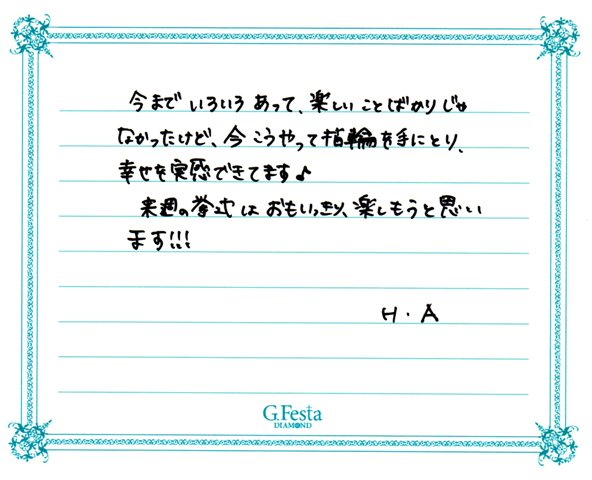 今までいろいろあって、楽しいことばかりじゃ
なかったけど、今こうやって指輪を手にとり、
幸せを実感できてます♪
来週の挙式はおもいっきり、楽しもうと思い
ます!!!
H・A
G.Festa
DIAMOND